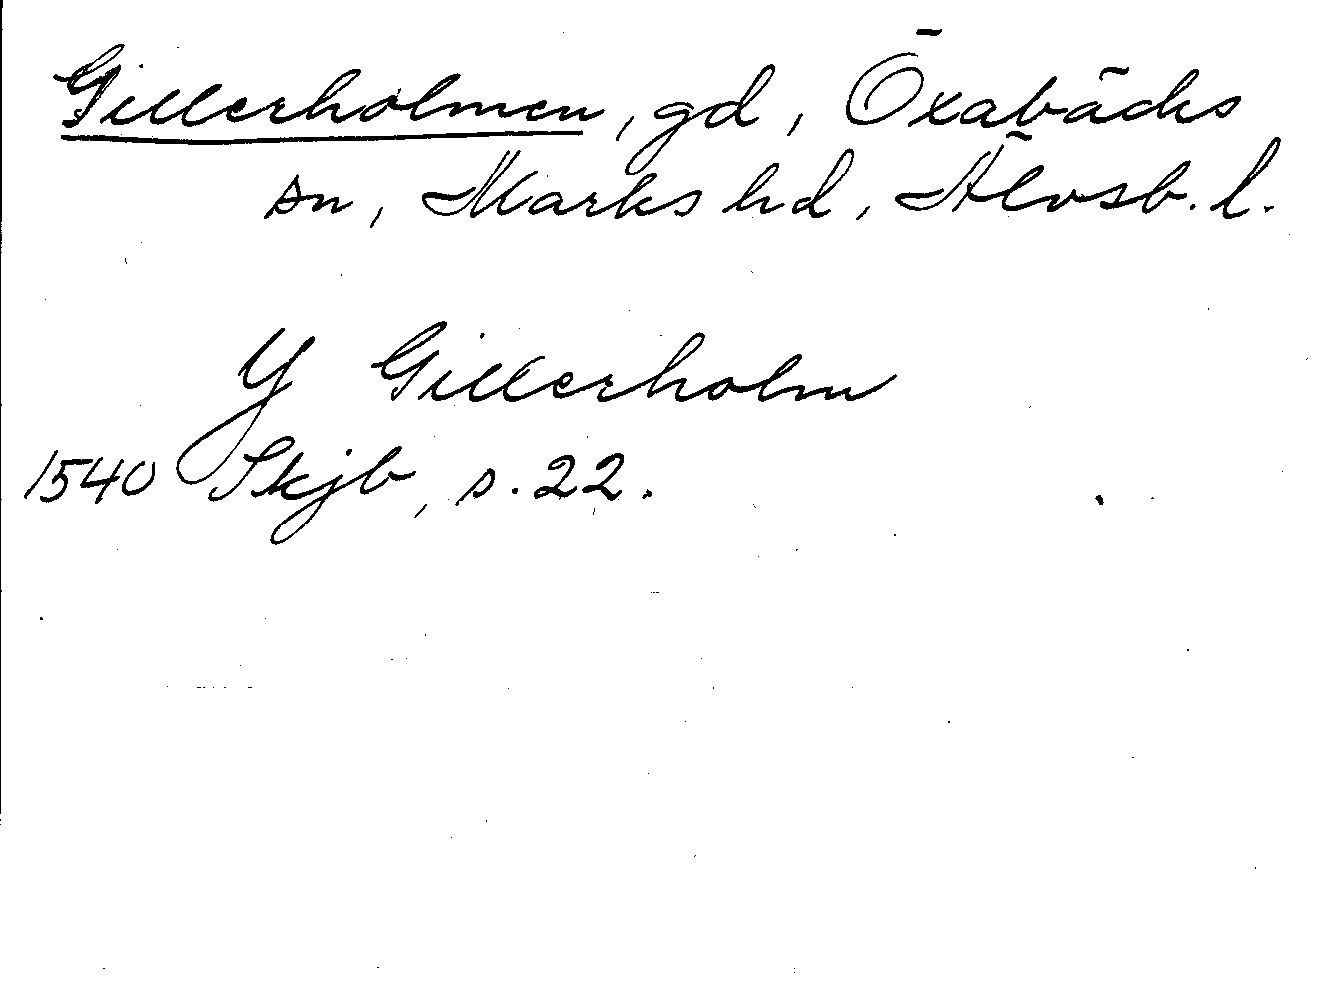 Gillerholmen, gd, Öxabäcks
sn, Marks hd, Älvsb. l.
Y Gillerholm
1540 Skjb, s. 22.